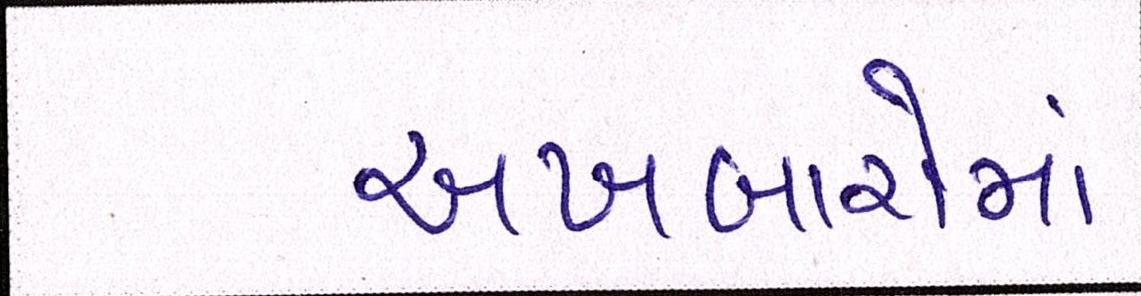 અખબારોમાં